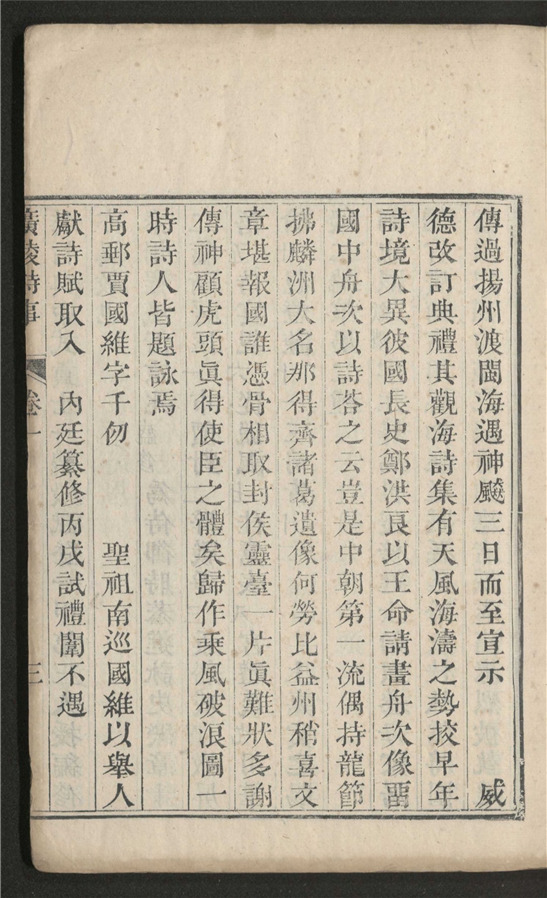 傳過揚州渡閩海遇神颷三日而至宣示　威
德改訂典禮其觀海詩集有天風海濤之勢挍早年
詩境大異彼國長史鄭洪良以王命請畫舟次像畱
國中舟次以詩荅之云豈是中朝第一流偶持龍節
拂麟洲大名那得齊諸葛遺像何勞比益州稍喜文
章堪報國誰憑骨相取封侯靈臺一片眞難狀多謝
傳神顧虎頭眞得使臣之體矣歸作乘風破浪圖一
時詩人皆題詠焉
高郵賈國維字千仞　聖祖南巡國維以舉人
獻詩賦取入　內廷纂修丙戌試禮闈不遇
廣陵詩事　卷一　三